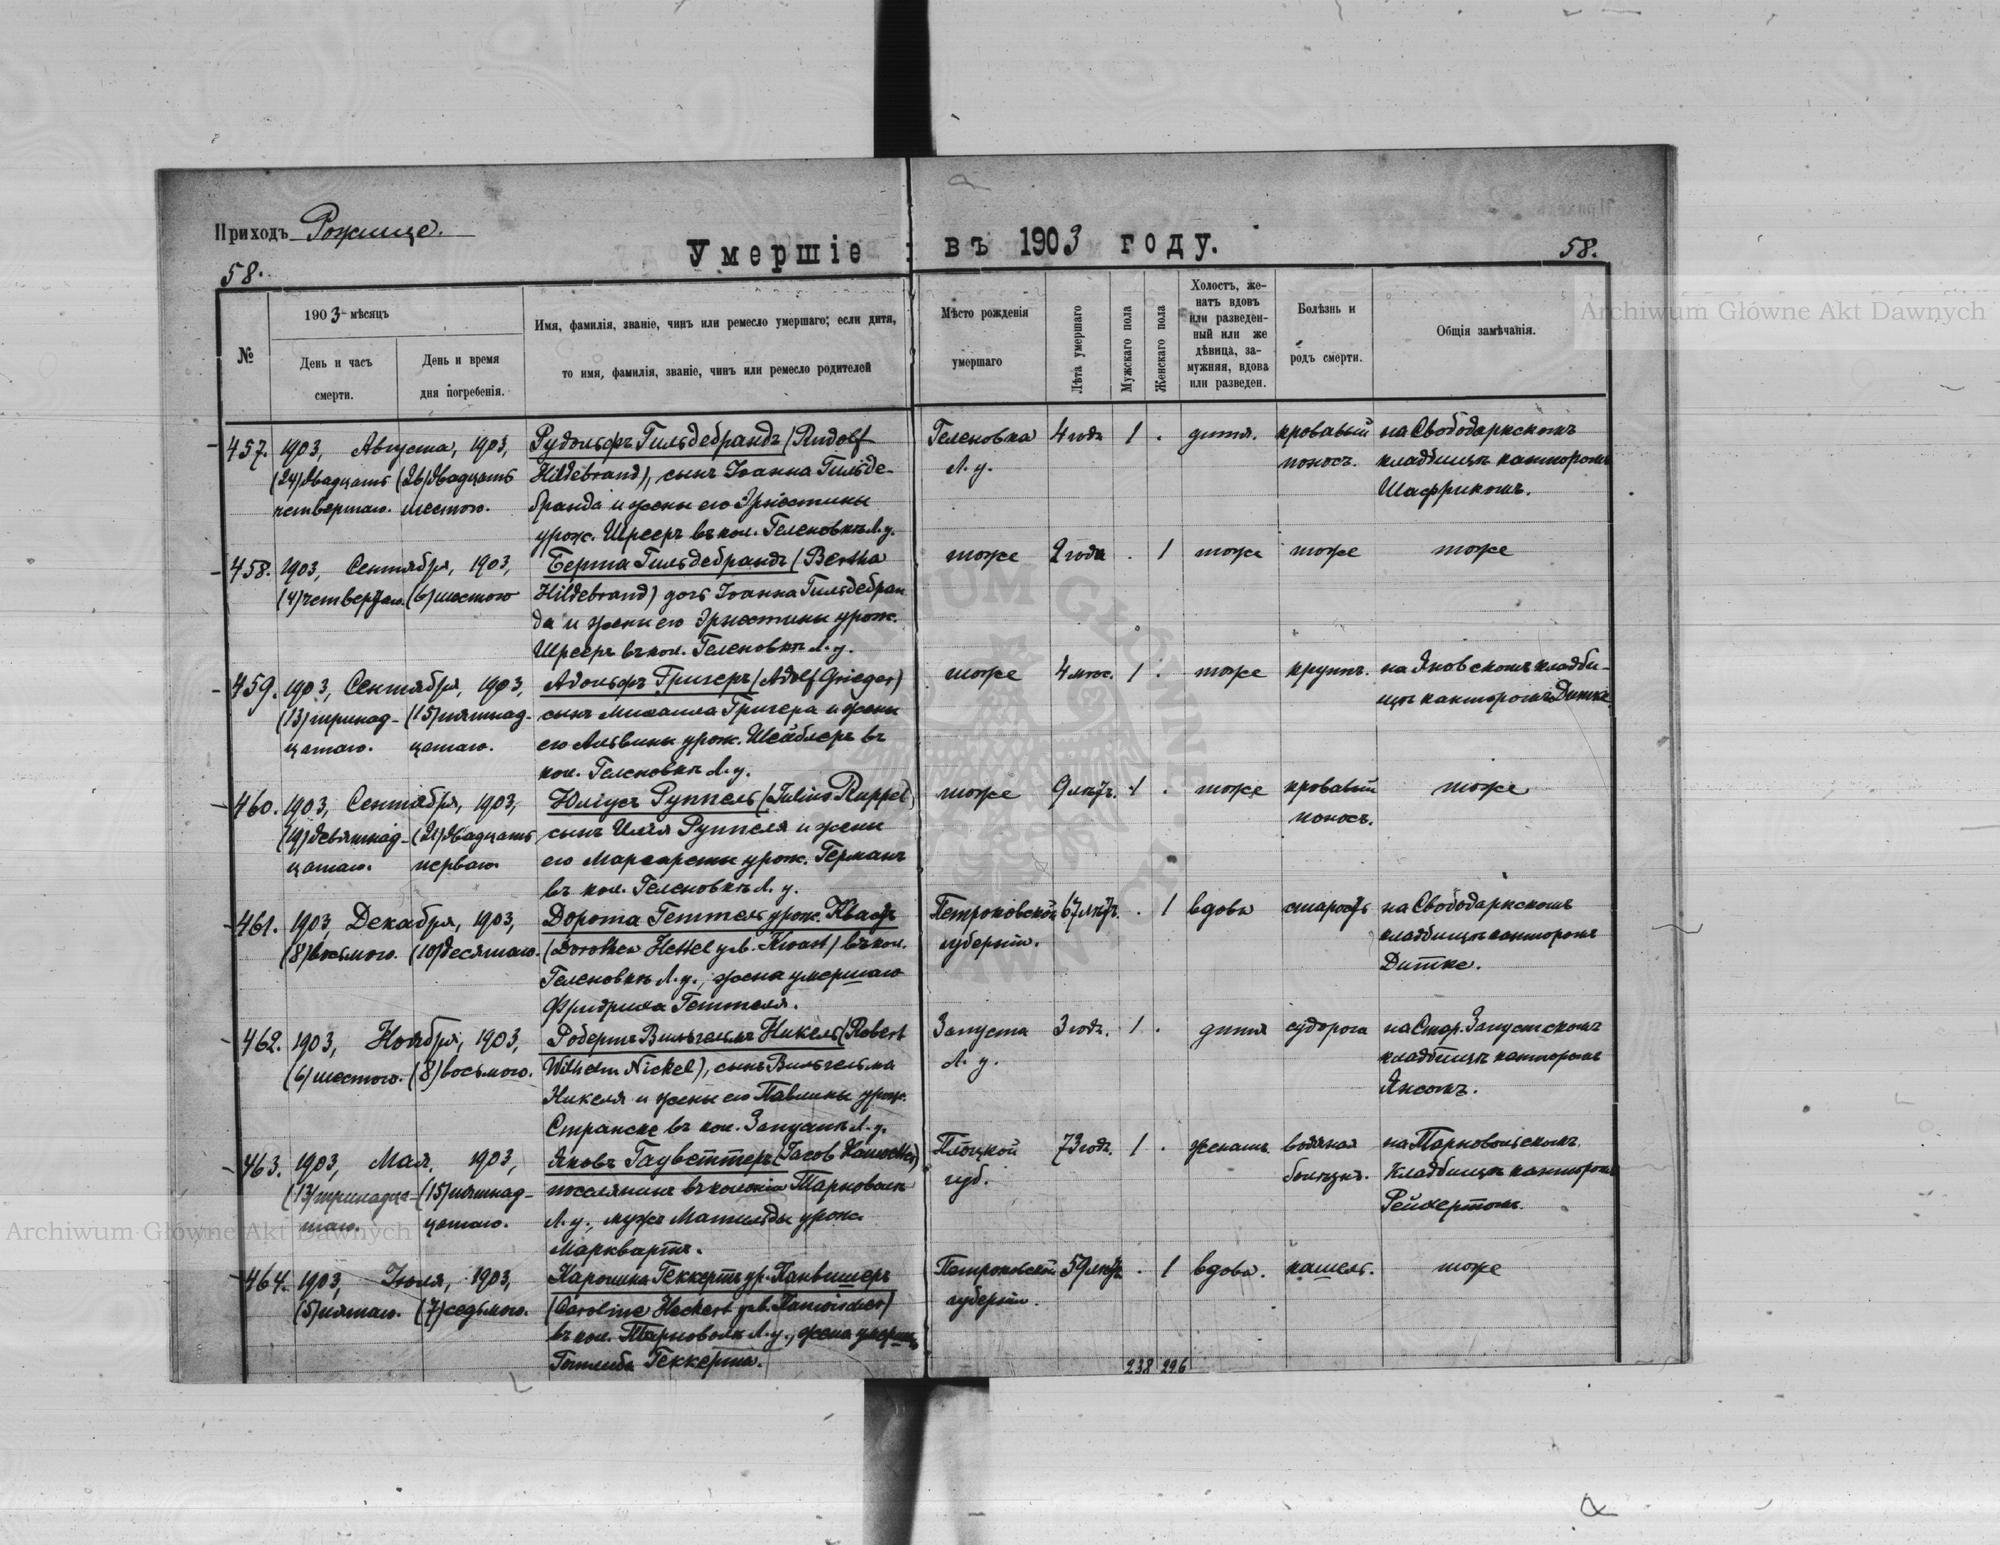 Приходъ Рожище.
Умершіе въ 1903 году.
58.
58.
№
1903 мѣсяцъ
День и часъ смерти.
День и время дня погребенія.
Имя, фамилія, званіе, чинъ или ремесло умершаго; если дитя,
то имя, фамилія, званіе, чинъ или ремесло родителей
Мѣсто рожденія
умершаго
Лѣта умершаго
Мужскаго пола
Женскаго пола
Холостъ, же-
натъ вдовъ
или разведен-
ный или же
дѣвица, за-
мужняя, вдова
или разведен.
Болѣзнь и
родъ смерти.
Общія замѣчанія.
457. 1903, Августа, 1903, Рудольфъ Гильдебрандъ (Rudolf Геленовка 4 года 1 . дитя. кровавый на Свободаркскомъ
(24) двадцать (26) двадцать Hildebrand), сынъ Іоанна Гильде- Л. у. поносъ. кладбищѣ канторомъ
четвертаго. шестого. бранда и жены его Эрнестины Шафрикомъ.
урож. Шрееръ въ кол. Геленовкѣ Л. у.
458. 1903, Сентября, 1903, Берта Гильдебрандъ (Bertha тоже 2 года . 1 тоже тоже тоже
(4) четвертаго (6) шестого Hildebrand) дочь Іоанна Гильдебран
да и жены его Эрнестины урож.
Шрееръ въ кол. Геленовкѣ Л. у.
459. 1903, Сентября, 1903, Адольфъ Григеръ (Adolf Grieger) тоже 4 мѣс. 1 . тоже крупъ. на Яновскомъ кладби-
(13) тринад- (15) пятнад- сынъ Михаила Григера и жены щѣ канторомъ Дитке
цатаго. цатаго. его Альвины урож. Шейблеръ въ
кол. Геленовкѣ Л. у.
460. 1903, Сентября, 1903, Юліусъ Руппель (Julius Ruppel) тоже 9 лѣтъ. 1 . тоже кровавый тоже
(19) девятнад- (21) двадцать сынъ Руппеля и жены поносъ.
цатаго. перваго. его Маргареты урож. Германъ
въ кол. Геленовкѣ Л. у.
461. 1903 Декабря, 1903, Дорота Геттель урож. Квастъ Петроковской 67 лѣтъ. . 1 вдова старость на Свободаркскомъ
(8) восьмого. (10) десятаго. (Dorothea Hettel geb. Kwast) въ кол. губерніи. кладбищѣ канторомъ
Геленовкѣ Л. у., жена умершаго Дитке.
Фридриха Геттеля.
462. 1903, Ноября, 1903, Робертъ Вильгельмъ Никель (Robert Запуста 3 года. 1 . дитя судорога на Стар. Запустскомъ
(6) шестого. (8) восьмого. Wilhelm Nickel), сынъ Вильгельма Л. у. кладбищѣ канторомъ
Никеля и жены его Павлины урож. Янсомъ.
Странске въ кол. Запустѣ Л. у.
463. 1903, Мая, 1903, Яковъ Гауветтеръ (Jacob Плоцкой 73 года. 1 . женатъ. водяная на Тарноволскомъ
(13) тринадца- (15) пятнад- поселянинъ въ колоніи Тарноволя губ. болѣзнь. кладбищѣ канторомъ
таго. цатаго. Л. у., мужъ Матильды урож. Рейхертомъ.
Марквартъ.
464. 1903, Іюля, 1903, Каролина Геккертъ ур. Панвишеръ Петроковской 59 лѣтъ . 1 вдова. кашель. тоже
(5) пятаго. (7) седьмого. (Caroline Heckert geb. Panwischer) губерніи.
въ кол. Тарноволя Л. у., жена умерш.
Готлиба Геккерта.
238 296
Archiwum Główne Akt Dawnych
Archiwum Główne Akt Dawnych